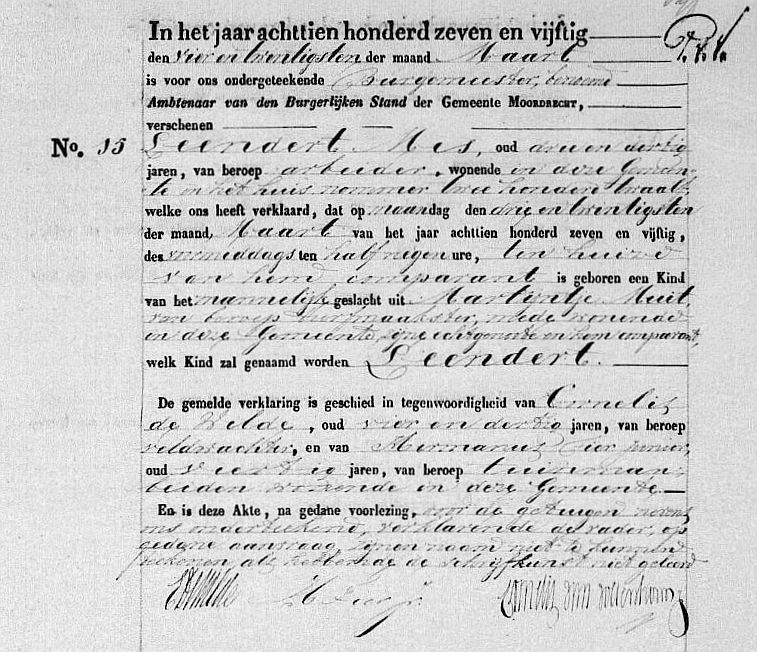 In het jaar achttien honderd zeven en vijftig
den vier en twintigsten der maand Maart
is voor ons ondergeteekende Burgemeester, benoemd
Ambtenaar van den Burgerlijken Stand der Gemeente MOORDRECHT,
verschenen
No. 15 Leendert Mes, oud drie en dertig
jaren, van beroep arbeider, wonende in deze Gemeen-
te in het huis nommer twee honderd twaalf
welke ons heeft verklaard, dat op maandag den drie en twintigsten
der maand Maart van het jaar achttien honderd zeven en vijftig,
des voormiddags ten half negen ure, ten huize
van hem comparant is geboren een Kind
van het mannelijk geslacht uit Martijntje Muit,
van beroep, mede wonende
in deze Gemeente, zijne echtgenoote en hem comparant,
welk Kind zal genaamd worden Leendert.
De gemelde verklaring is geschied in tegenwoordigheid van Cornelis
de Wilde, oud vier en dertig jaren, van beroep
veldwachter, en van Hermanus
oud veertig jaren, van beroep tuinman,
beiden wonende in deze Gemeente.
En is deze Akte, na gedane voorlezing, door de getuigen nevens
ons onderteekend, verklarende de vader, op
gedane aanvraag, zijnen naam niet te kunnen
teekenen, als hebbende de schrijfkunst niet geleerd